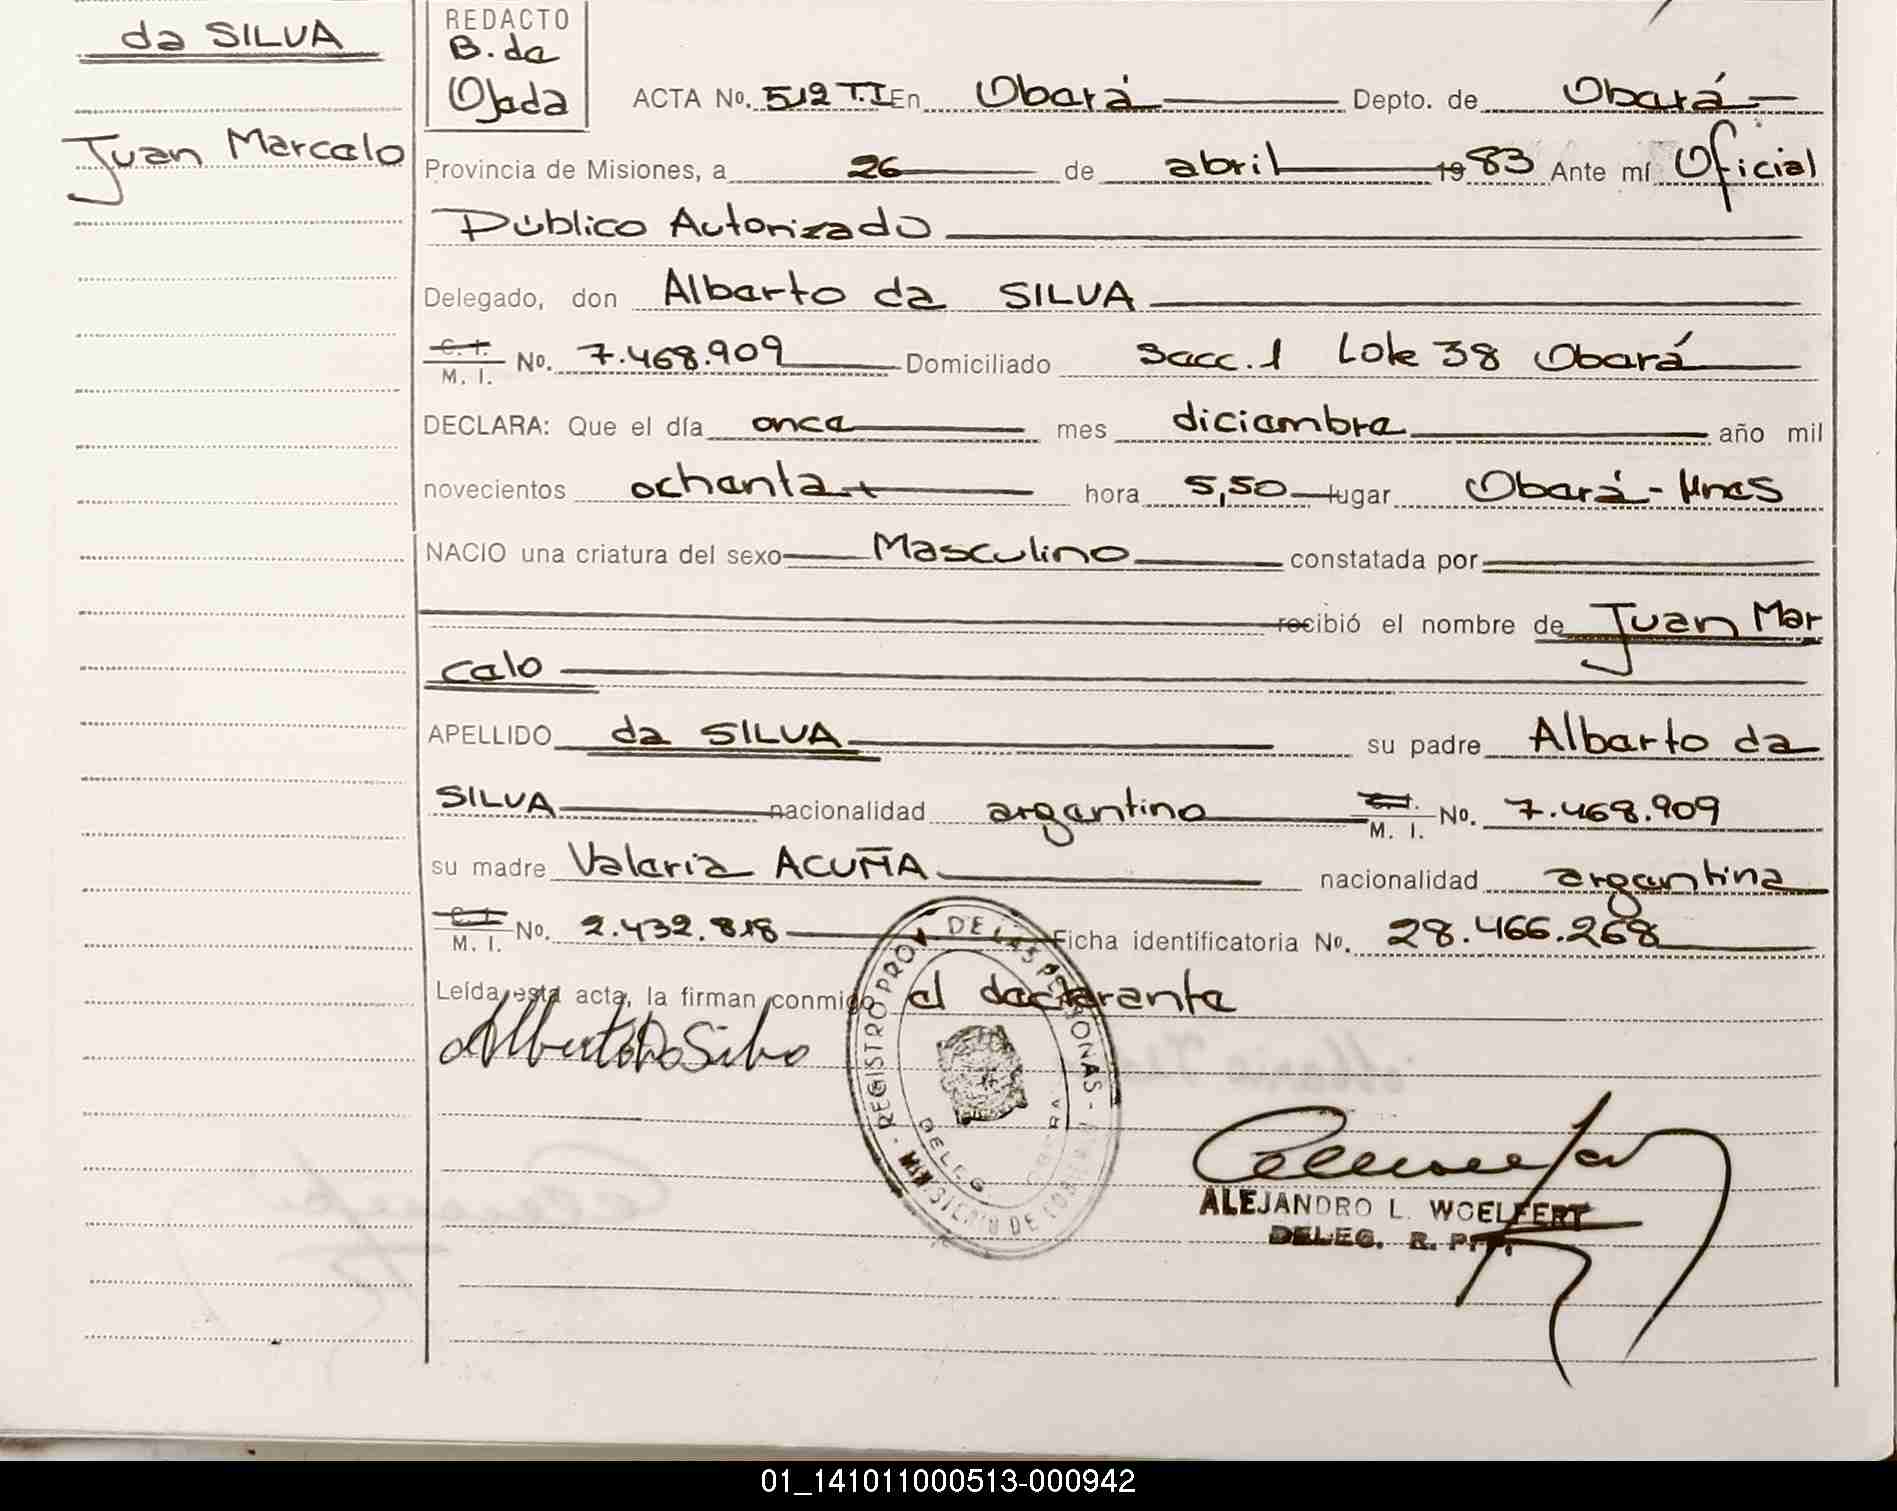 da SILVA
Juan Marcelo
REDACTO
B. de
Ojeda
ACTA No. 512 T.I En Oberá Depto. de Oberá
Provincia de Misiones, a 26 de abril 1983 Ante mí Oficial
Público Autorizado
Delegado, don Alberto da SILVA
C. I. M. I. No. 7.468.909 Domiciliado Secc. 1 Lote 38 Oberá
DECLARA: Que el día once mes diciembre año mil
novecientos ochenta hora 5,50 lugar Oberá - Mnes
NACIO una criatura del sexo Masculino constatada por
recibió el nombre de Juan Mar
celo
APELLIDO da SILVA su padre Alberto da
SILVA nacionalidad argentino C. I. M. I. No. 7.468.909
su madre Valeria ACUÑA nacionalidad argentina
C. I. M. I. No. 2.432.818 Ficha identificatoria No. 28.466.268
Leída esta acta, la firman conmigo el declarante
Alberto Da Silva
REGISTRO PROV. DE LAS PERSONAS - MINISTERIO DE GOBIERNO
DELEG. OBERA
ALEJANDRO L. WOELFERT
DELEG. R. P. P.
01_141011000513-000942